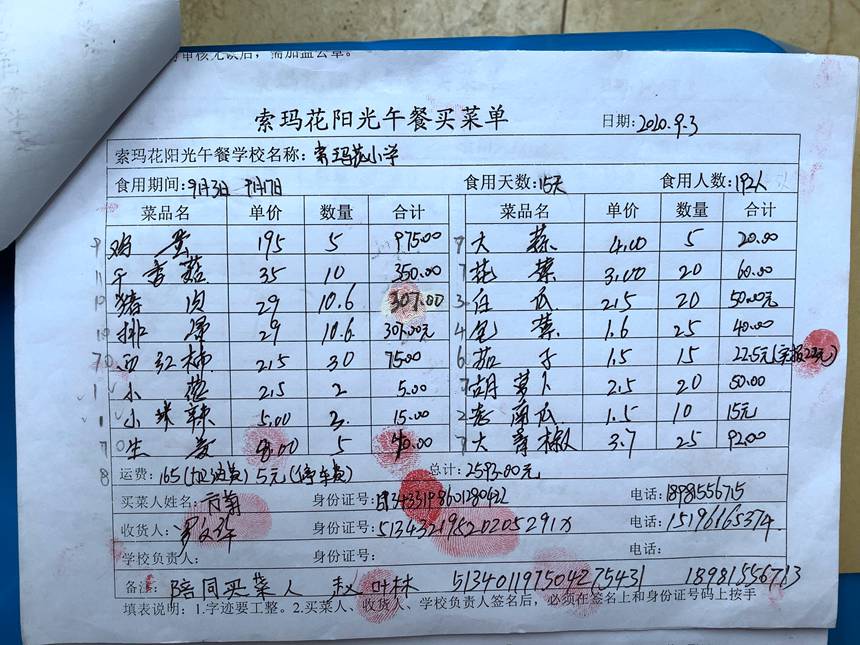 索玛花阳光午餐买菜单 日期:2020.9.3
索玛花阳光午餐学校名称:索玛花小学
食用期间:9月3日 9月17日 食用天数:15天 食用人数:192人
菜品名 单价 数量 合计 菜品名 单价 数量 合计
鸡蛋 195 5 975.00 大蒜 4.00 5 20.00
干香菇 35 10 350.00 花菜 3.00 20 60.00
猪肉 29 10.6 307.00 白瓜 2.5 20 50.00元
排骨 29 10.6 307.00元 包菜 1.6 25 40.00
西红柿 2.5 30 75.00 茄子 1.5 15 22.5元(实报22元)
小葱 2.5 2 5.00 胡萝卜 2.5 20 50.00
小米辣 5.00 15.00 老南瓜 1.5 10 15元
生姜 8.00 5 40.00 大青椒 3.7 25 92.00
运费:165(加油费) 5元(停车费) 总计:2593.00元
买菜人姓名: 身份证号: 电话:18981556715
收货人: 身份证号: 电话:
学校负责人: 身份证号: 电话:
备注: 陪同买菜人 赵叶林 513401197504275431 18981556713
填表说明:1.字迹要工整。2.买菜人、收货人、学校负责人签名后,必须在签名上和身份证号码上按手